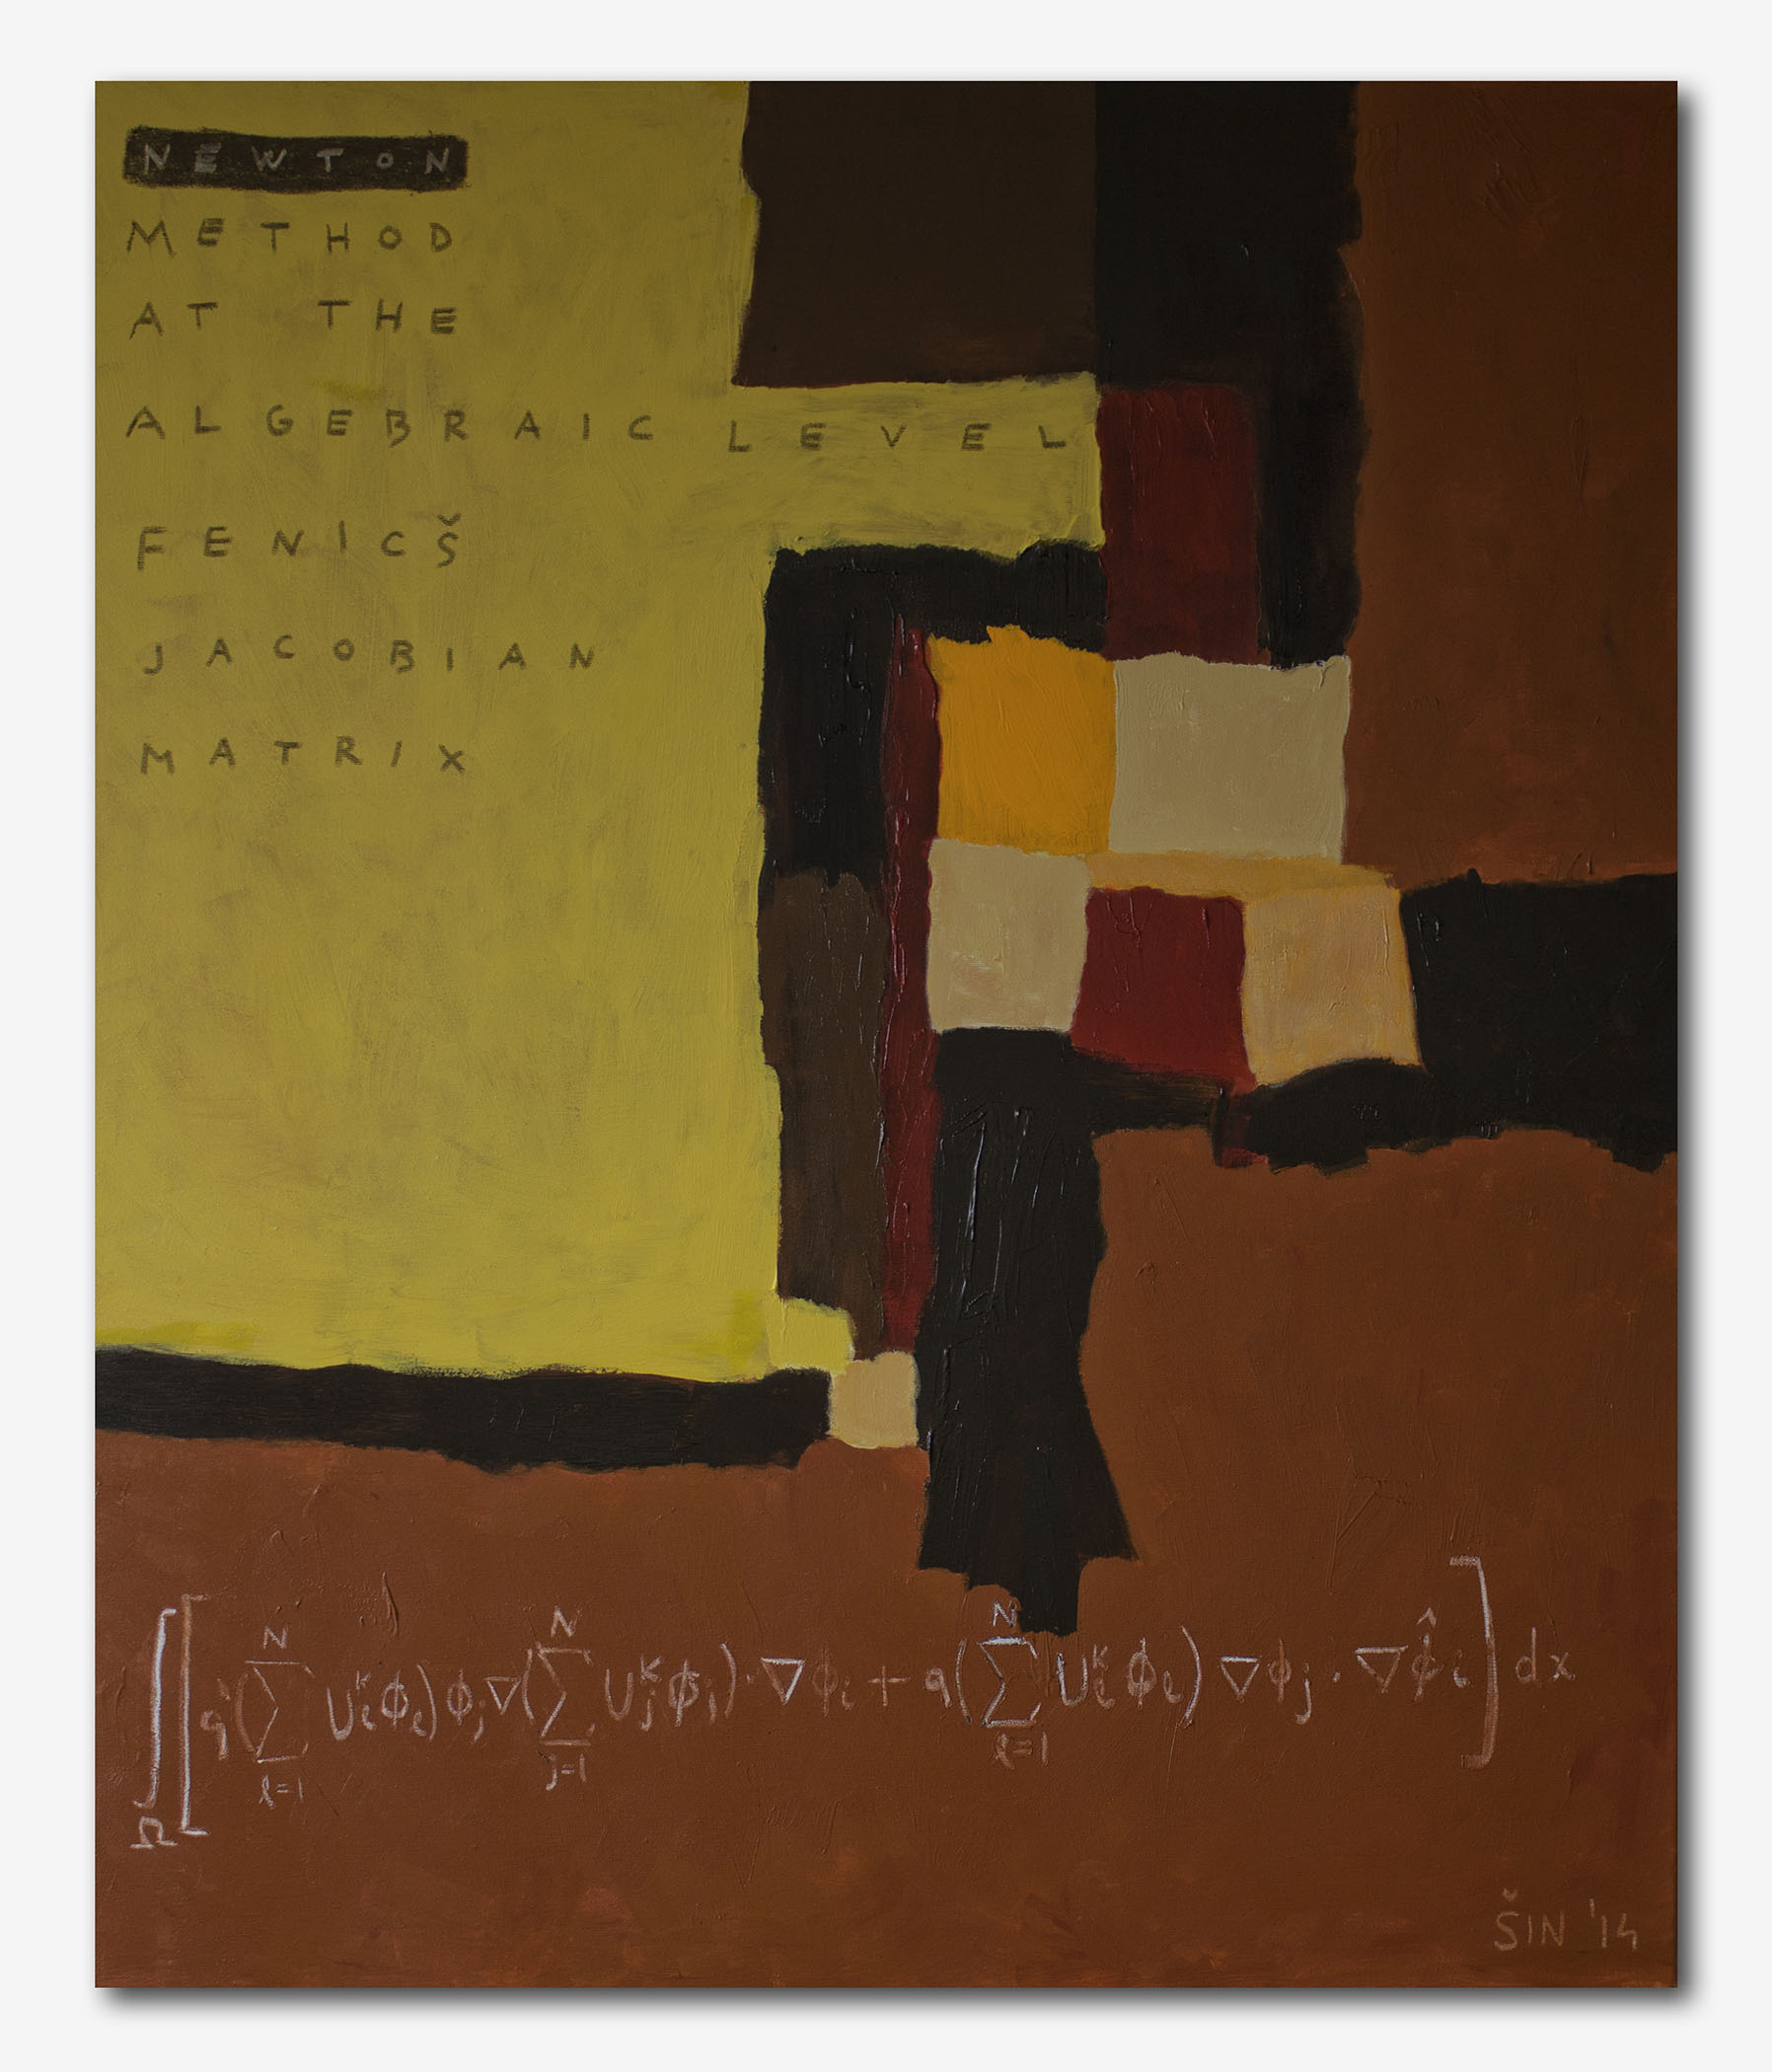 NEWTON
METHOD
AT THE
ALGEBRAIC LEVEL
FENICŠ
JACOBIAN
MATRIX
∫_Ω [q'(∑_{ℓ=1}^{N} U_ℓ^k ϕ_ℓ) ϕ_j ∇(∑_{j=1}^{N} U_j^k ϕ_j) · ∇ϕ_i + q(∑_{ℓ=1}^{N} U_ℓ^k ϕ_ℓ) ∇ϕ_j · ∇ϕ̂_i] dx
ŠIN '14